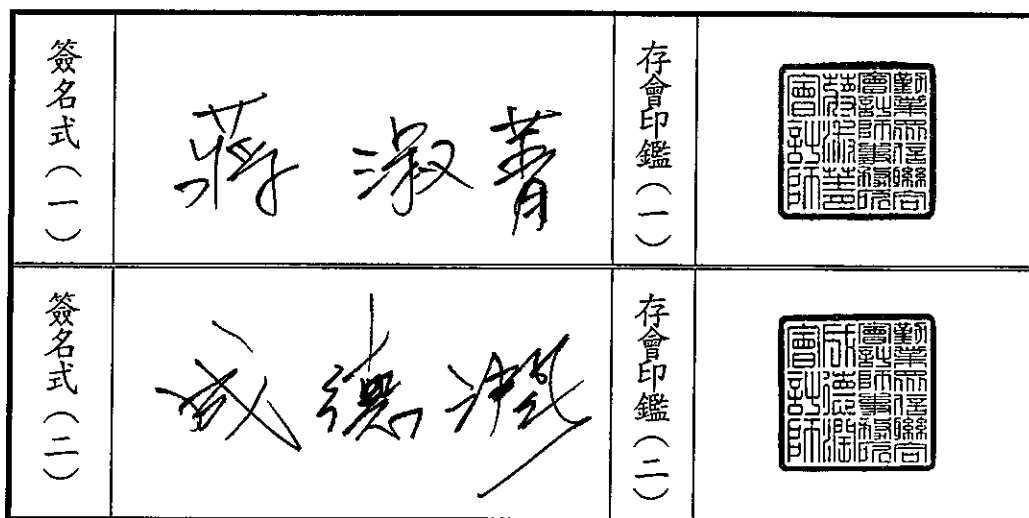 簽名式（一）
蔣淑菁
存會印鑑（一）
勤業眾信聯合
會計師事務所
蔣淑菁
會計師
簽名式（二）
成德潤
存會印鑑（二）
勤業眾信聯合
會計師事務所
成德潤
會計師